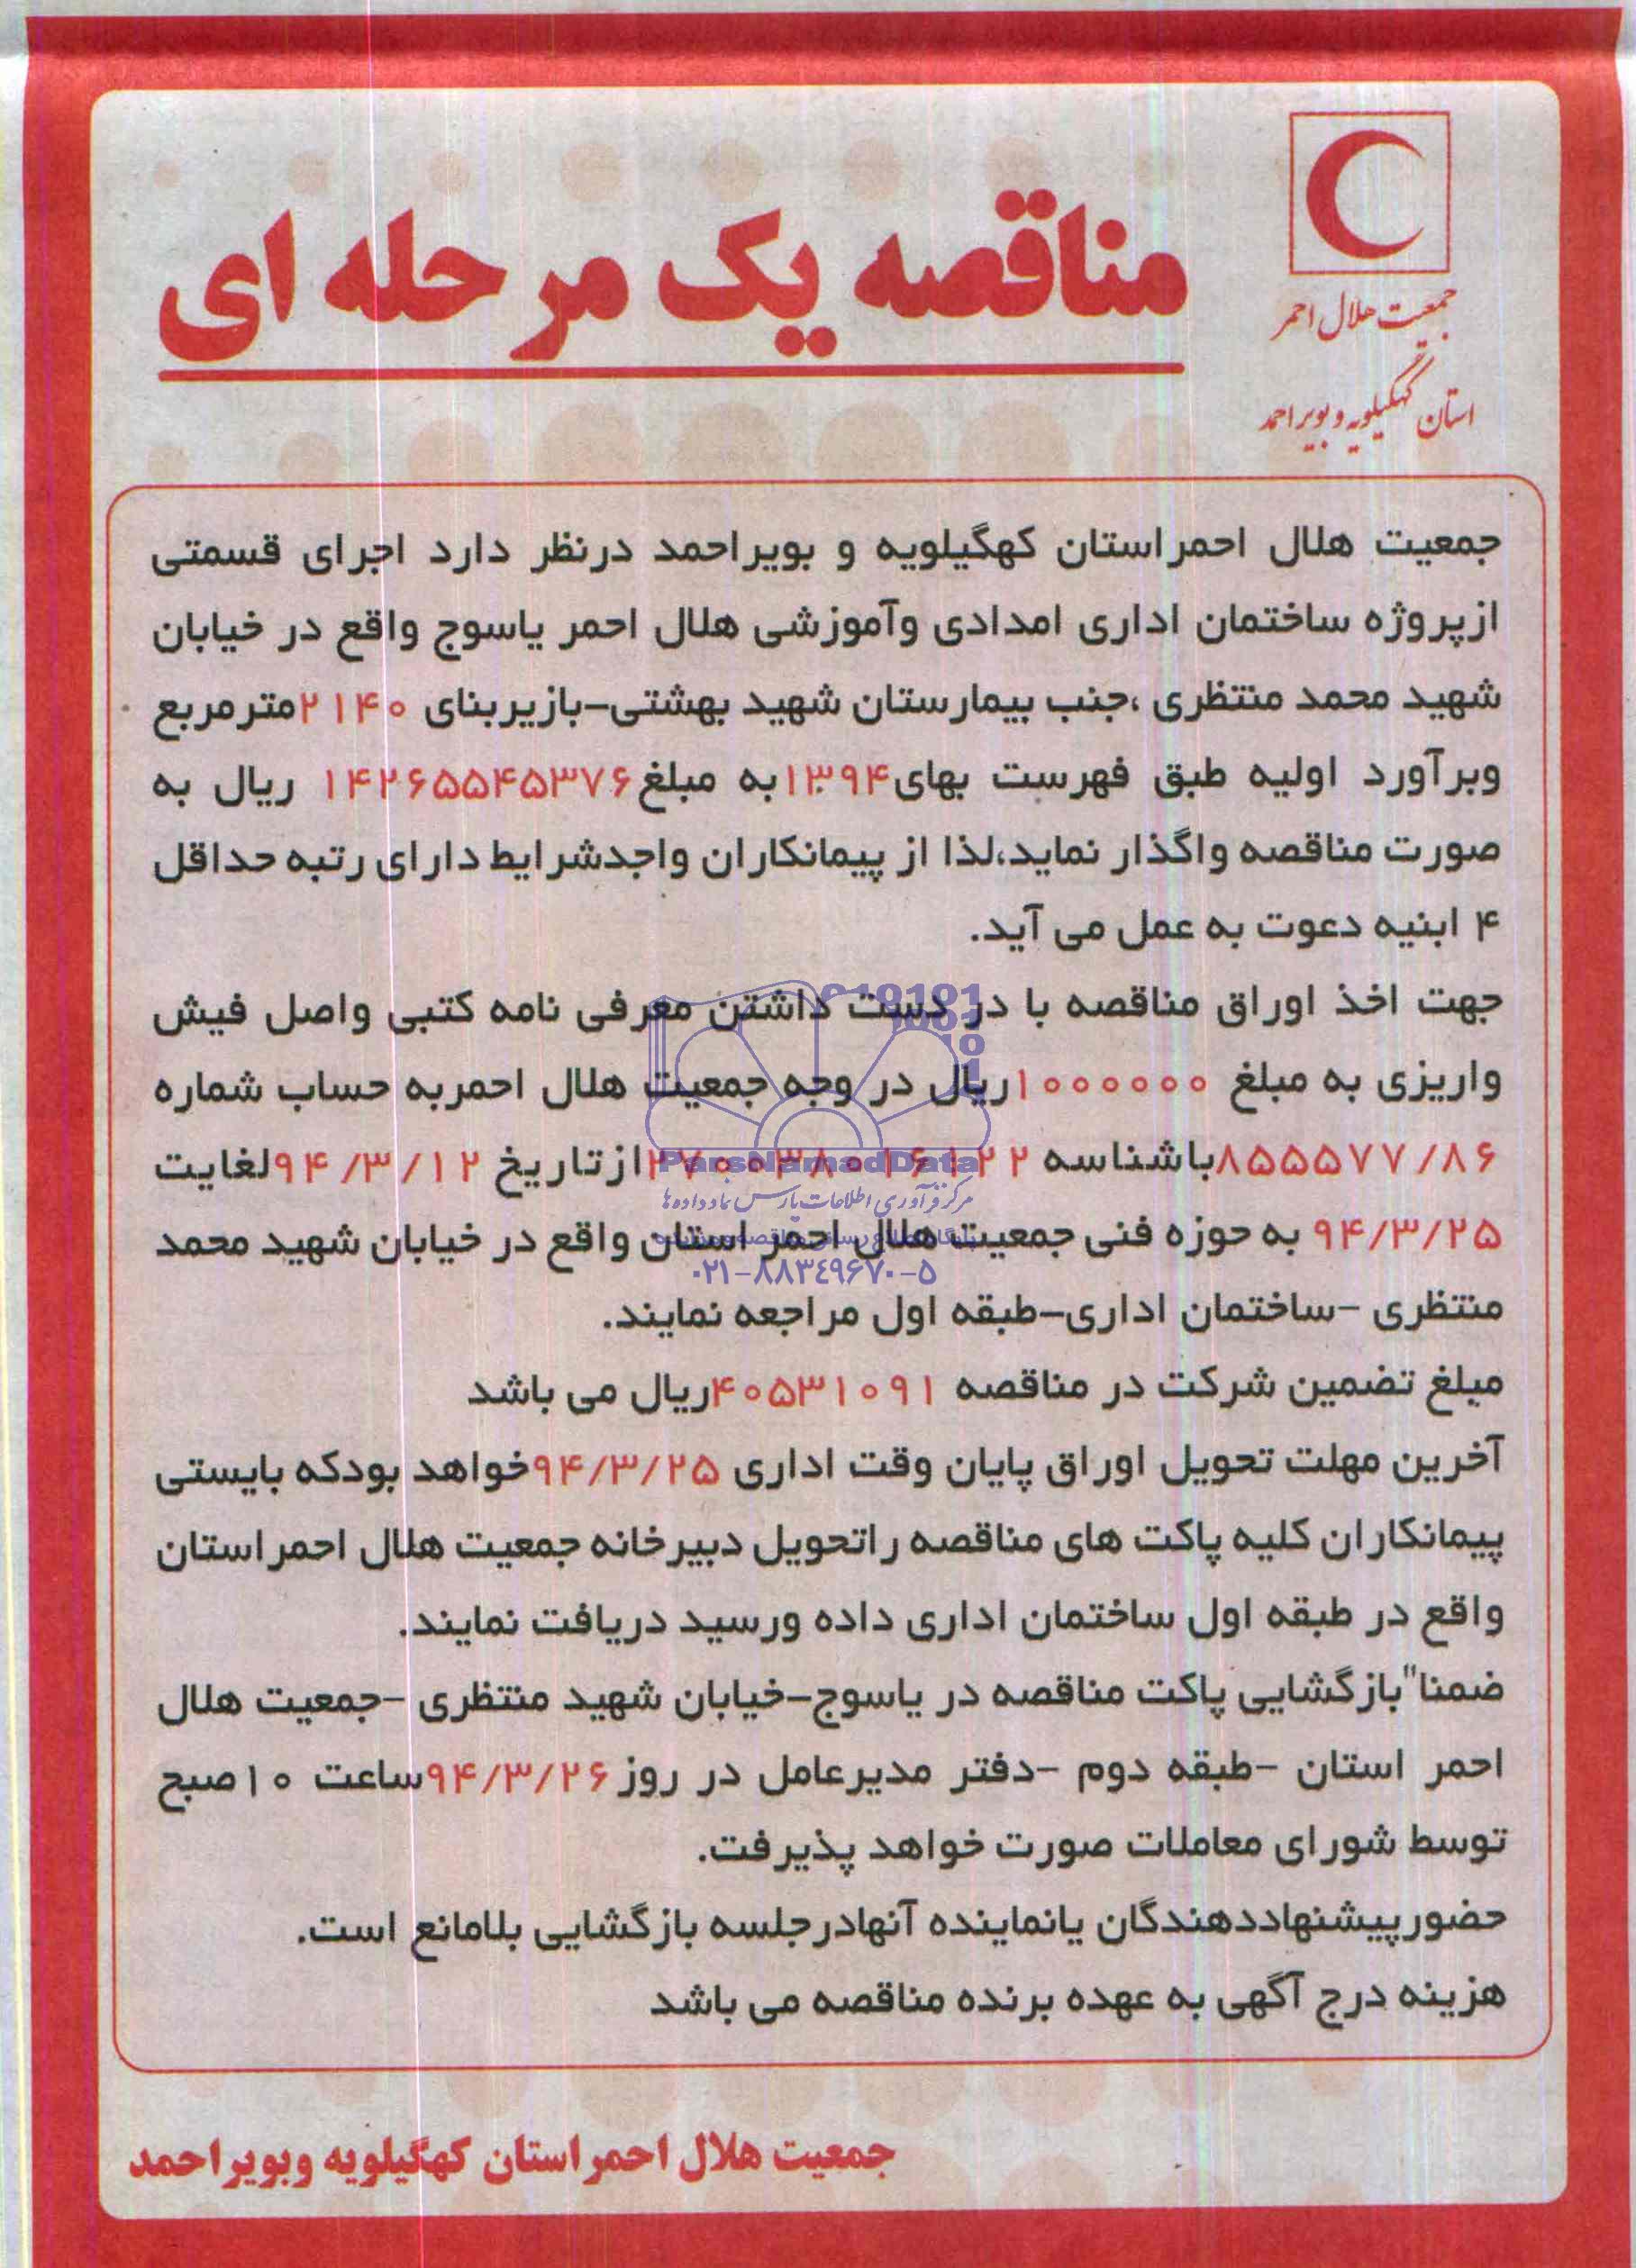 جمعیت هلال احمر
استان کهگیلویه و بویراحمد
مناقصه یک مرحله ای
جمعیت هلال احمراستان کهگیلویه و بویراحمد درنظر دارد اجرای قسمتی
ازپروژه ساختمان اداری امدادی وآموزشی هلال احمر یاسوج واقع در خیابان
شهید محمد منتظری ،جنب بیمارستان شهید بهشتی-بازیربنای ۲۱۴۰مترمربع
وبرآورد اولیه طبق فهرست بهای۱۳۹۴به مبلغ۱۴۲۶۵۵۴۵۳۷۶ ریال به
صورت مناقصه واگذار نماید،لذا از پیمانکاران واجدشرایط دارای رتبه حداقل
۴ ابنیه دعوت به عمل می آید.
جهت اخذ اوراق مناقصه با در دست داشتن معرفی نامه کتبی واصل فیش
واریزی به مبلغ ۱۰۰۰۰۰۰ریال در وجه جمعیت هلال احمربه حساب شماره
۸۵۵۵۷۷/۸۶باشناسه ازتاریخ ۹۴/۳/۱۲لغایت
۹۴/۳/۲۵ به حوزه فنی جمعیت هلال احمر استان واقع در خیابان شهید محمد
منتظری -ساختمان اداری-طبقه اول مراجعه نمایند.
مبلغ تضمین شرکت در مناقصه ۴۰۵۳۱۰۹۱ریال می باشد
آخرین مهلت تحویل اوراق پایان وقت اداری ۹۴/۳/۲۵خواهد بودکه بایستی
پیمانکاران کلیه پاکت های مناقصه راتحویل دبیرخانه جمعیت هلال احمراستان
واقع در طبقه اول ساختمان اداری داده ورسید دریافت نمایند.
ضمنا"بازگشایی پاکت مناقصه در یاسوج-خیابان شهید منتظری -جمعیت هلال
احمر استان -طبقه دوم -دفتر مدیرعامل در روز ۹۴/۳/۲۶ساعت ۱۰صبح
توسط شورای معاملات صورت خواهد پذیرفت.
حضورپیشنهاددهندگان یانماینده آنهادرجلسه بازگشایی بلامانع است.
هزینه درج آگهی به عهده برنده مناقصه می باشد
جمعیت هلال احمراستان کهگیلویه وبویراحمد
ParsNamadData
مرکز فرآوری اطلاعات پارس نماد داده ها
۰۲۱-۸۸۳۴۹۶۷۰-۵